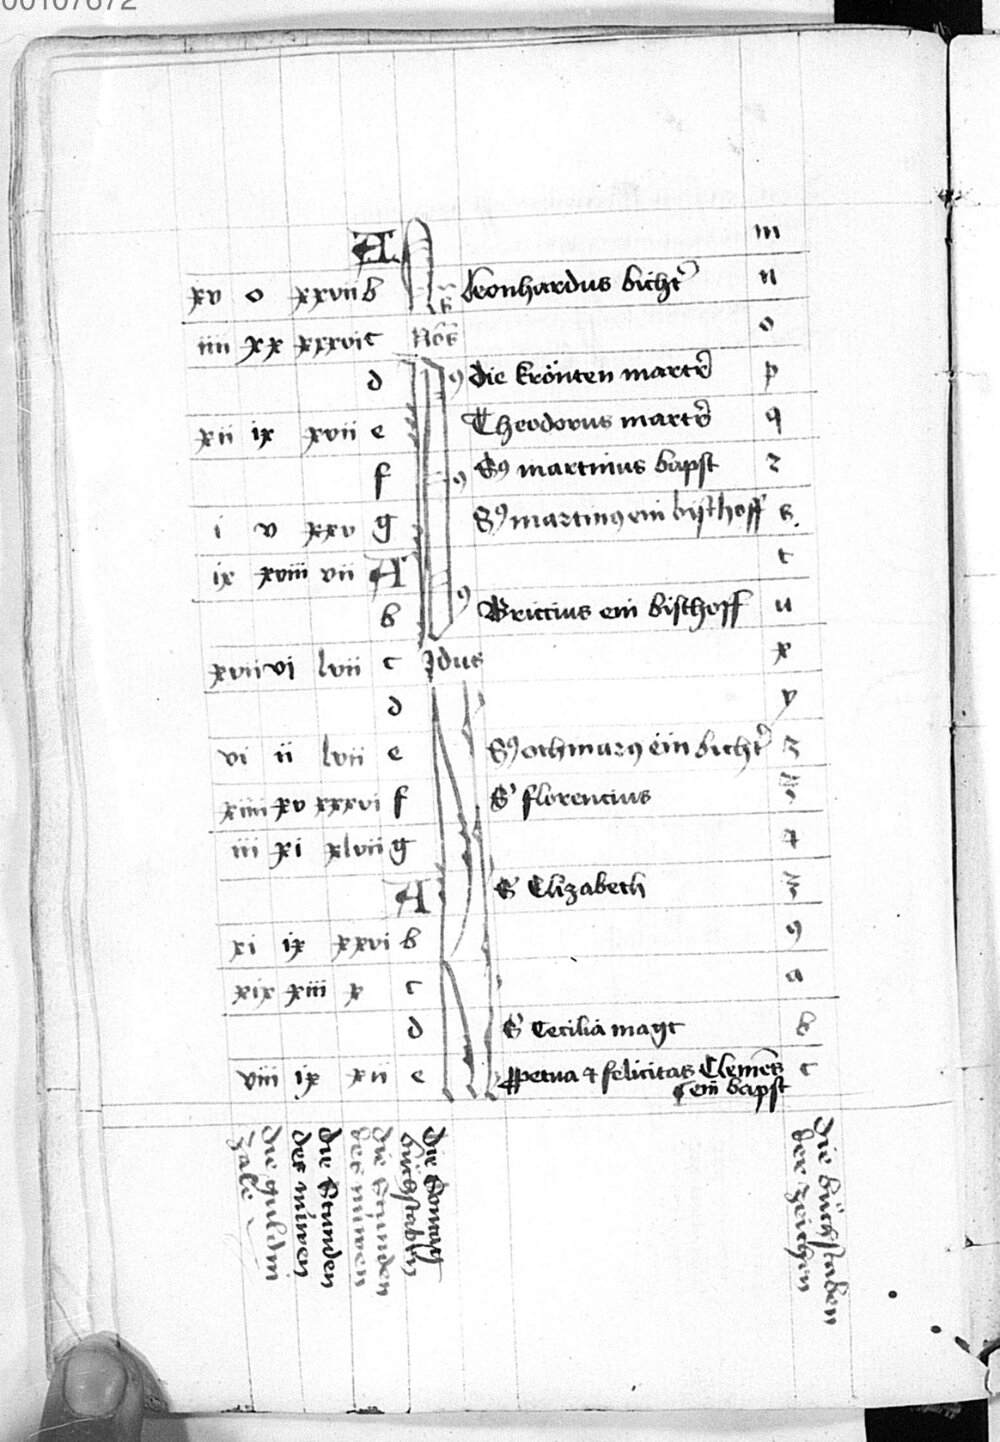 00107672
A m
xv o xxvii b Leonhardus bicht͛ n
iiii xx xxxvi c Noͫ o
d die krönten martr͛ p
xii ix xvii e Theodorus martr͛ q
f S9 martinus bapst z
i v xxv g S9 martin9 ein bischoff s
ix xviii vii A t
b Briccius ein bischoff u
xvii vi lvii c Idus x
d y
vi ii lvii e S9 othmar9 ein bicht͛ z
xiiii xv xxxvi f S' florencius
iii xi xlvii g
A S' Elizabeth
xi ix xxvi b 9
xix xiii x c a
d S' Cecilia magt b
viii ix xii e ꝑpetua ⁊ felicitas Clemēs c
ein bapst
die guldin
zale
die Stunden
des nüwen
die Stunden
des nüwen
die Sontag
büchstaben
die büchstaben
der zeichen